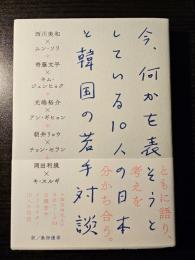 今、何かを表そうと
している10人の日本
と韓国の若手対談
ともに語り、
考えを
分かち合う。
西川美和
×
ムン・ソリ
寄藤文平
×
キム・
ジュンヒョク
光嶋裕介
×
アン・ギヒョン
朝井リョウ
×
チョン・セラン
岡田利規
×
キ・スルギ
訳／桑畑優香